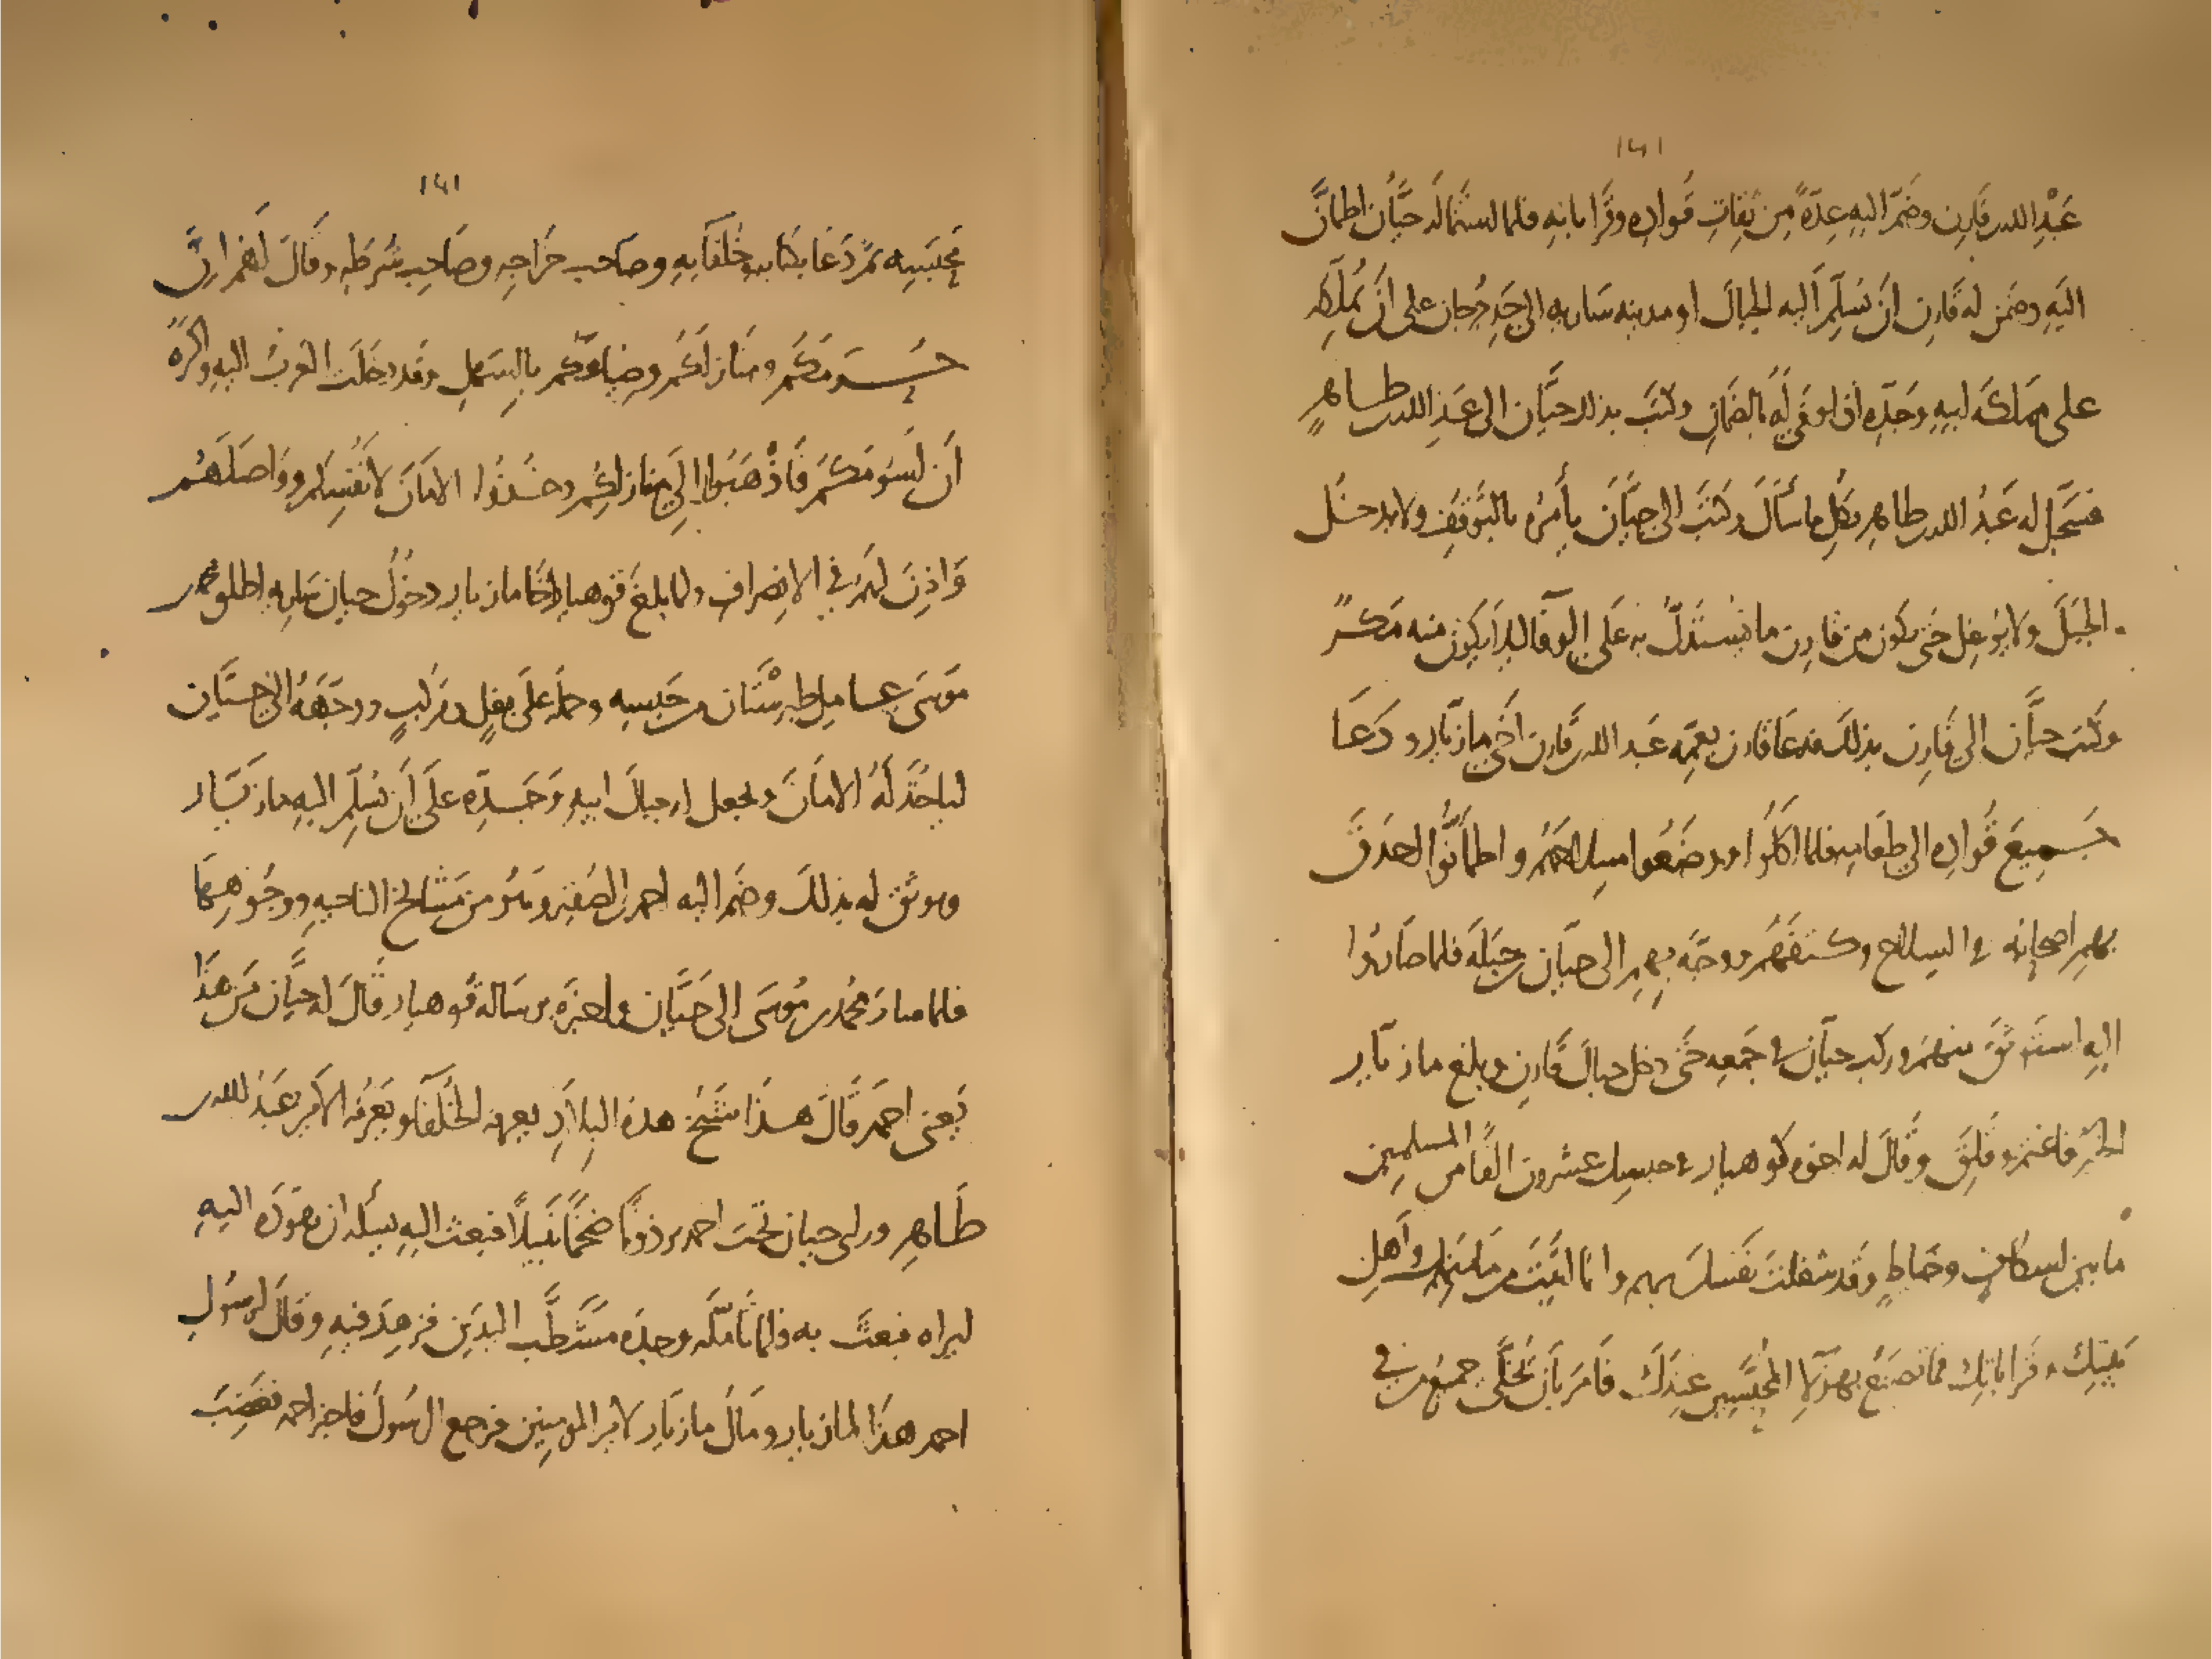 ١٤١
عَبْدِ الله بن قَارِن وضَمَّ اليهِ عِدّةً مِن ثِقاتِ قُوادِه وقَراباتِهِ فلما استمالَه حَيَّان اطمانَّ
اليَهِ وضَمِن له قَارِن انَ يُسَلِّمَ اليه الجبالَ او مدينه سَاريه الى حَدِ جُرجان على انَ يُمَلِّكه
على مملكَه ابيهِ وجَدّه اذا وفَى لَه بالضمانِ وكتبَ بذلك حيَّان الى عَبدِ الله بن طاهرٍ
فسَجَّل له عَبدُ الله بن طاهرِ بكلِ ما سَأَلَ وكتبَ الى حيَّانَ يأمُره بالتوقُفِ ولا يدخل
الجَبَلَ ولا يُوغِل حتى يكون من قارن ما يُستَدلّ به عَلى الوفا ليلا يكون منه مَكرٌ
وكتب حيَّان الى قارِن بذلك فدعَا قارن بعَمِّه عَبد الله بن قارن اخى مازيار ودَعَا
جَمِيعَ قُوادِه الى طعَامِه فلما اكلوا ووضَعُوا سِلاحَهُم واطمأنّوا احدقَ
بهمِ اصحابُه فى السِلاح وكتفَهُم ووجَّه بِهِم الى حيَّان بن جَبَلَه فلما صَارُوا
اليهِ استوثقَ منهم وركب حيَّان فى جَمعِه حتى دخل جبالَ قارن وبلغ مازيار
الخبرُ فاغتم وقَلِقَ وقالَ له اخوه كوهيار فى حبسِك عشرون الفًا من المسلمين
ما بين اسكافٍ وخياطٍ وقد شغلتَ نفسَك بهم وانما اُتيتَ من مامنِك واهلِ
بَيتِك وقراباتِك فما تصنَعُ بهؤلآءِ المُحبَّسِين عندَك فأمَرَ بأن يُخلَّى جميعُ من فى
١٤١
مَحبَسِه ثم دَعَا بكتابِه وخُلَفآيهِ وصَاحبِ خَراجِه وصَاحِب شُرطَتِه وقالَ لَهُم اِنَّ
حُرَمَكم ومنازلَكُم وضياعَكم بالسَهلِ وقد دخلَت العربُ اليه واكرَهُ
اَن اسوءَكم فَاذْهَبُوا اِلى منازلِكُم وخُذُوا الامَانَ لاَنفُسِكم وواصلَهُم
وَاَذِنَ لهُم فى الانصِرافِ ولما بلغَ قوهيار اخا مازيار دخُولُ حيان سَاريه اطلق محمد بن
موسَى عامل طبرستَان من حَبسِه وحملَه عَلَى بغلٍ ومركبٍ ووجَّهَهُ الى حيَّان
لياخُذَ لَهُ الامَانَ ويجعلَ له جبالَ ابيهِ وَجَدِّه على اَن يُسَلِّمَ اليهِ مازيَار
ويوثق له بذلك وضَم اليه احمد بن الصُقَير وهو من مَشَايخ الناحيهِ ووجُوهِهَا
فلما صارَ محمد بن مُوسَى الى حَيَّان واخبرَه برسَالة قُوهيار قالَ له حيَّان مَن هذَا
يَعنى احمَد قالَ هذَا شَيخ هذه البلادِ يعرفه الخُلَفآ ويَعرِفُه الاَمير عَبدُ الله بن
طَاهِرٍ وراى حيان تَحت احمد برذونًا ضخمًا نَبيلًا فبعث اليهِ يسَلُه ان يقودَه اليهِ
ليراه فبعثَ به فلما تَأمّلَه وجدَه مشَطَّب اليَدين فزهِدَ فيهِ وقالَ لرسُولِ
احمد هذَا لمازيار ومَالُ مازيَار لامير المومِنين فرجعَ الرسُولُ فاخبر احمد فغضِبَ